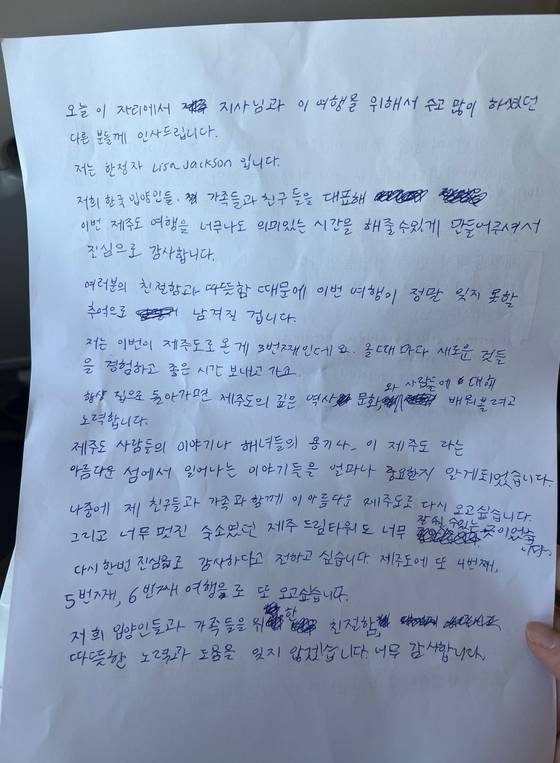 오늘 이 자리에서 지사님과 이 여행을 위해서 수고 많이 하셨던
다른 분들께 인사드립니다.
저는 한정자 Lisa Jackson 입니다.
저희 한국 입양인들, 가족들과 친구들을 대표해
이번 제주도 여행을 너무나도 의미있는 시간을 해줄수있게 만들어주셔서
진심으로 감사합니다.
여러분의 친절함과 따뜻함 때문에 이번 여행이 정말 잊지 못할
추억으로 남겨질 겁니다.
저는 이번이 제주도로 온게 3번째인데요. 올때마다 새로운 것들
을 경험하고 좋은 시간 보내고 가요.
항상 집으로 돌아가면 제주도의 깊은 역사 문화와 사람들에 대해 배워볼려고
노력합니다.
제주도 사람들의 이야기나 해녀들의 용기나 이 제주도 라는
아름다운 섬에서 일어나는 이야기들을 얼마나 중요한지 알게되었습니다.
나중에 제 친구들과 가족과 함께 이 아름다운 제주도로 다시 오고싶습니다.
그리고 너무 멋진 숙소였던 제주 드림타워도 너무 곳이었습니다.
다시 한번 진심을로 감사하다고 전하고 싶습니다. 제주도에 또 4번째,
5번째, 6번째 여행을로 또 오고싶습니다.
저희 입양인들과 가족들을 위한 친절함,
따뜻한 노력과 도움을 잊지 않겠습니다. 너무 감사합니다.